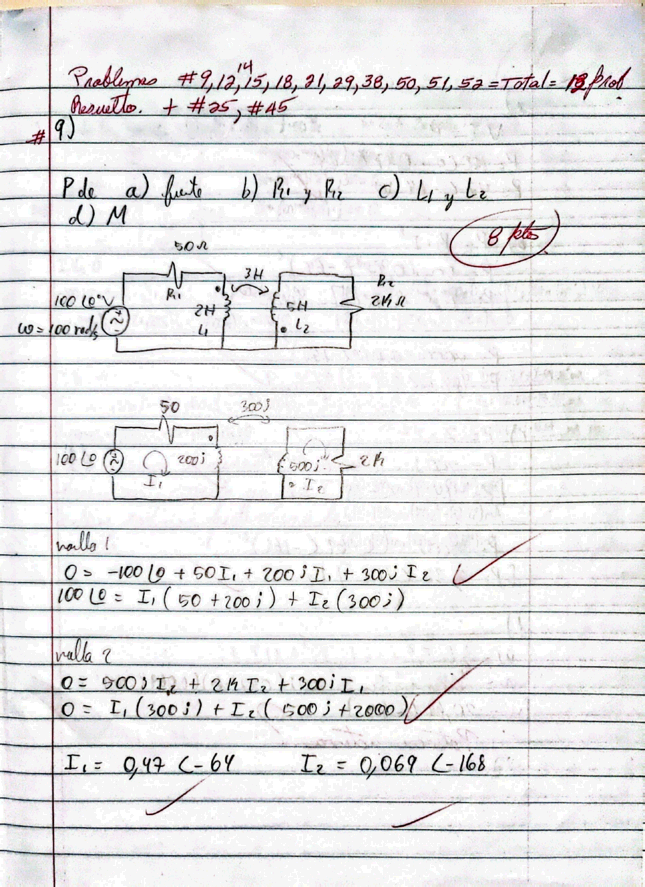 14
Problemas #9,12,15,18,21,29,38,50,51,52=Total= 13 Prob
Resuelto. + #25, #45
# 9)
P de a) fuente b) R1 y R2 c) L1 y L2
d) M
8 pts
50Ω
R1
3H
R2
2KΩ
100∠0°V
ω=100 rad/s
2H
L1
5H
L2
50
300j
100∠0
200j
500j
2K
I1
I2
malla 1
0 = -100∠0 + 50I1 + 200jI1 + 300jI2
100∠0 = I1(50+200j) + I2(300j)
malla 2
0 = 500jI2 + 2KI2 + 300jI1
0 = I1(300j) + I2(500j+2000)
I1 = 0,47∠-64 I2 = 0,069∠-168